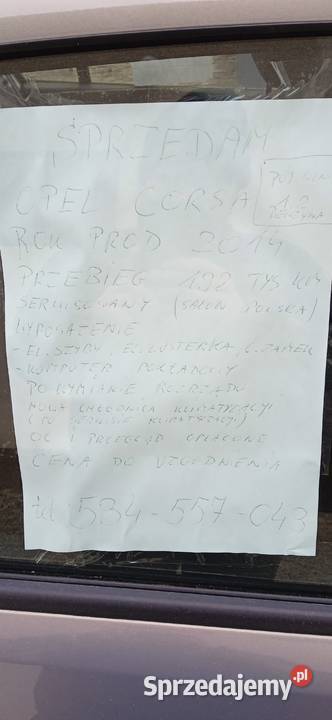 SPRZEDAM
OPEL CORSA
POJ. SIL
1,2
BENZYNA
ROK PROD 2014
PRZEBIEG 192 TYS KM
SERWISOWANY (SALON POLSKA)
WYPOSAŻENIE
- EL. SZYBY, EL. LUSTERKA, C. ZAMEK
- KOMPUTER POKŁADOWY
PO WYMIANIE ROZRZĄDU
NOWA CHŁODNICA KLIMATYZACJI
(PO SERWISIE KLIMATYZACJI)
OC I PRZEGLĄD OPŁACONE
CENA DO UZGODNIENIA
tel 534-557-043
Sprzedajemy.pl